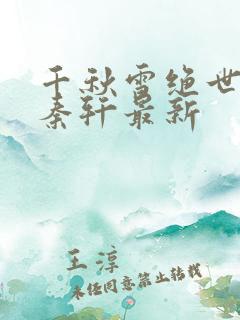 千秋雪绝世
秦轩最新
王淳
未经同意禁止转载